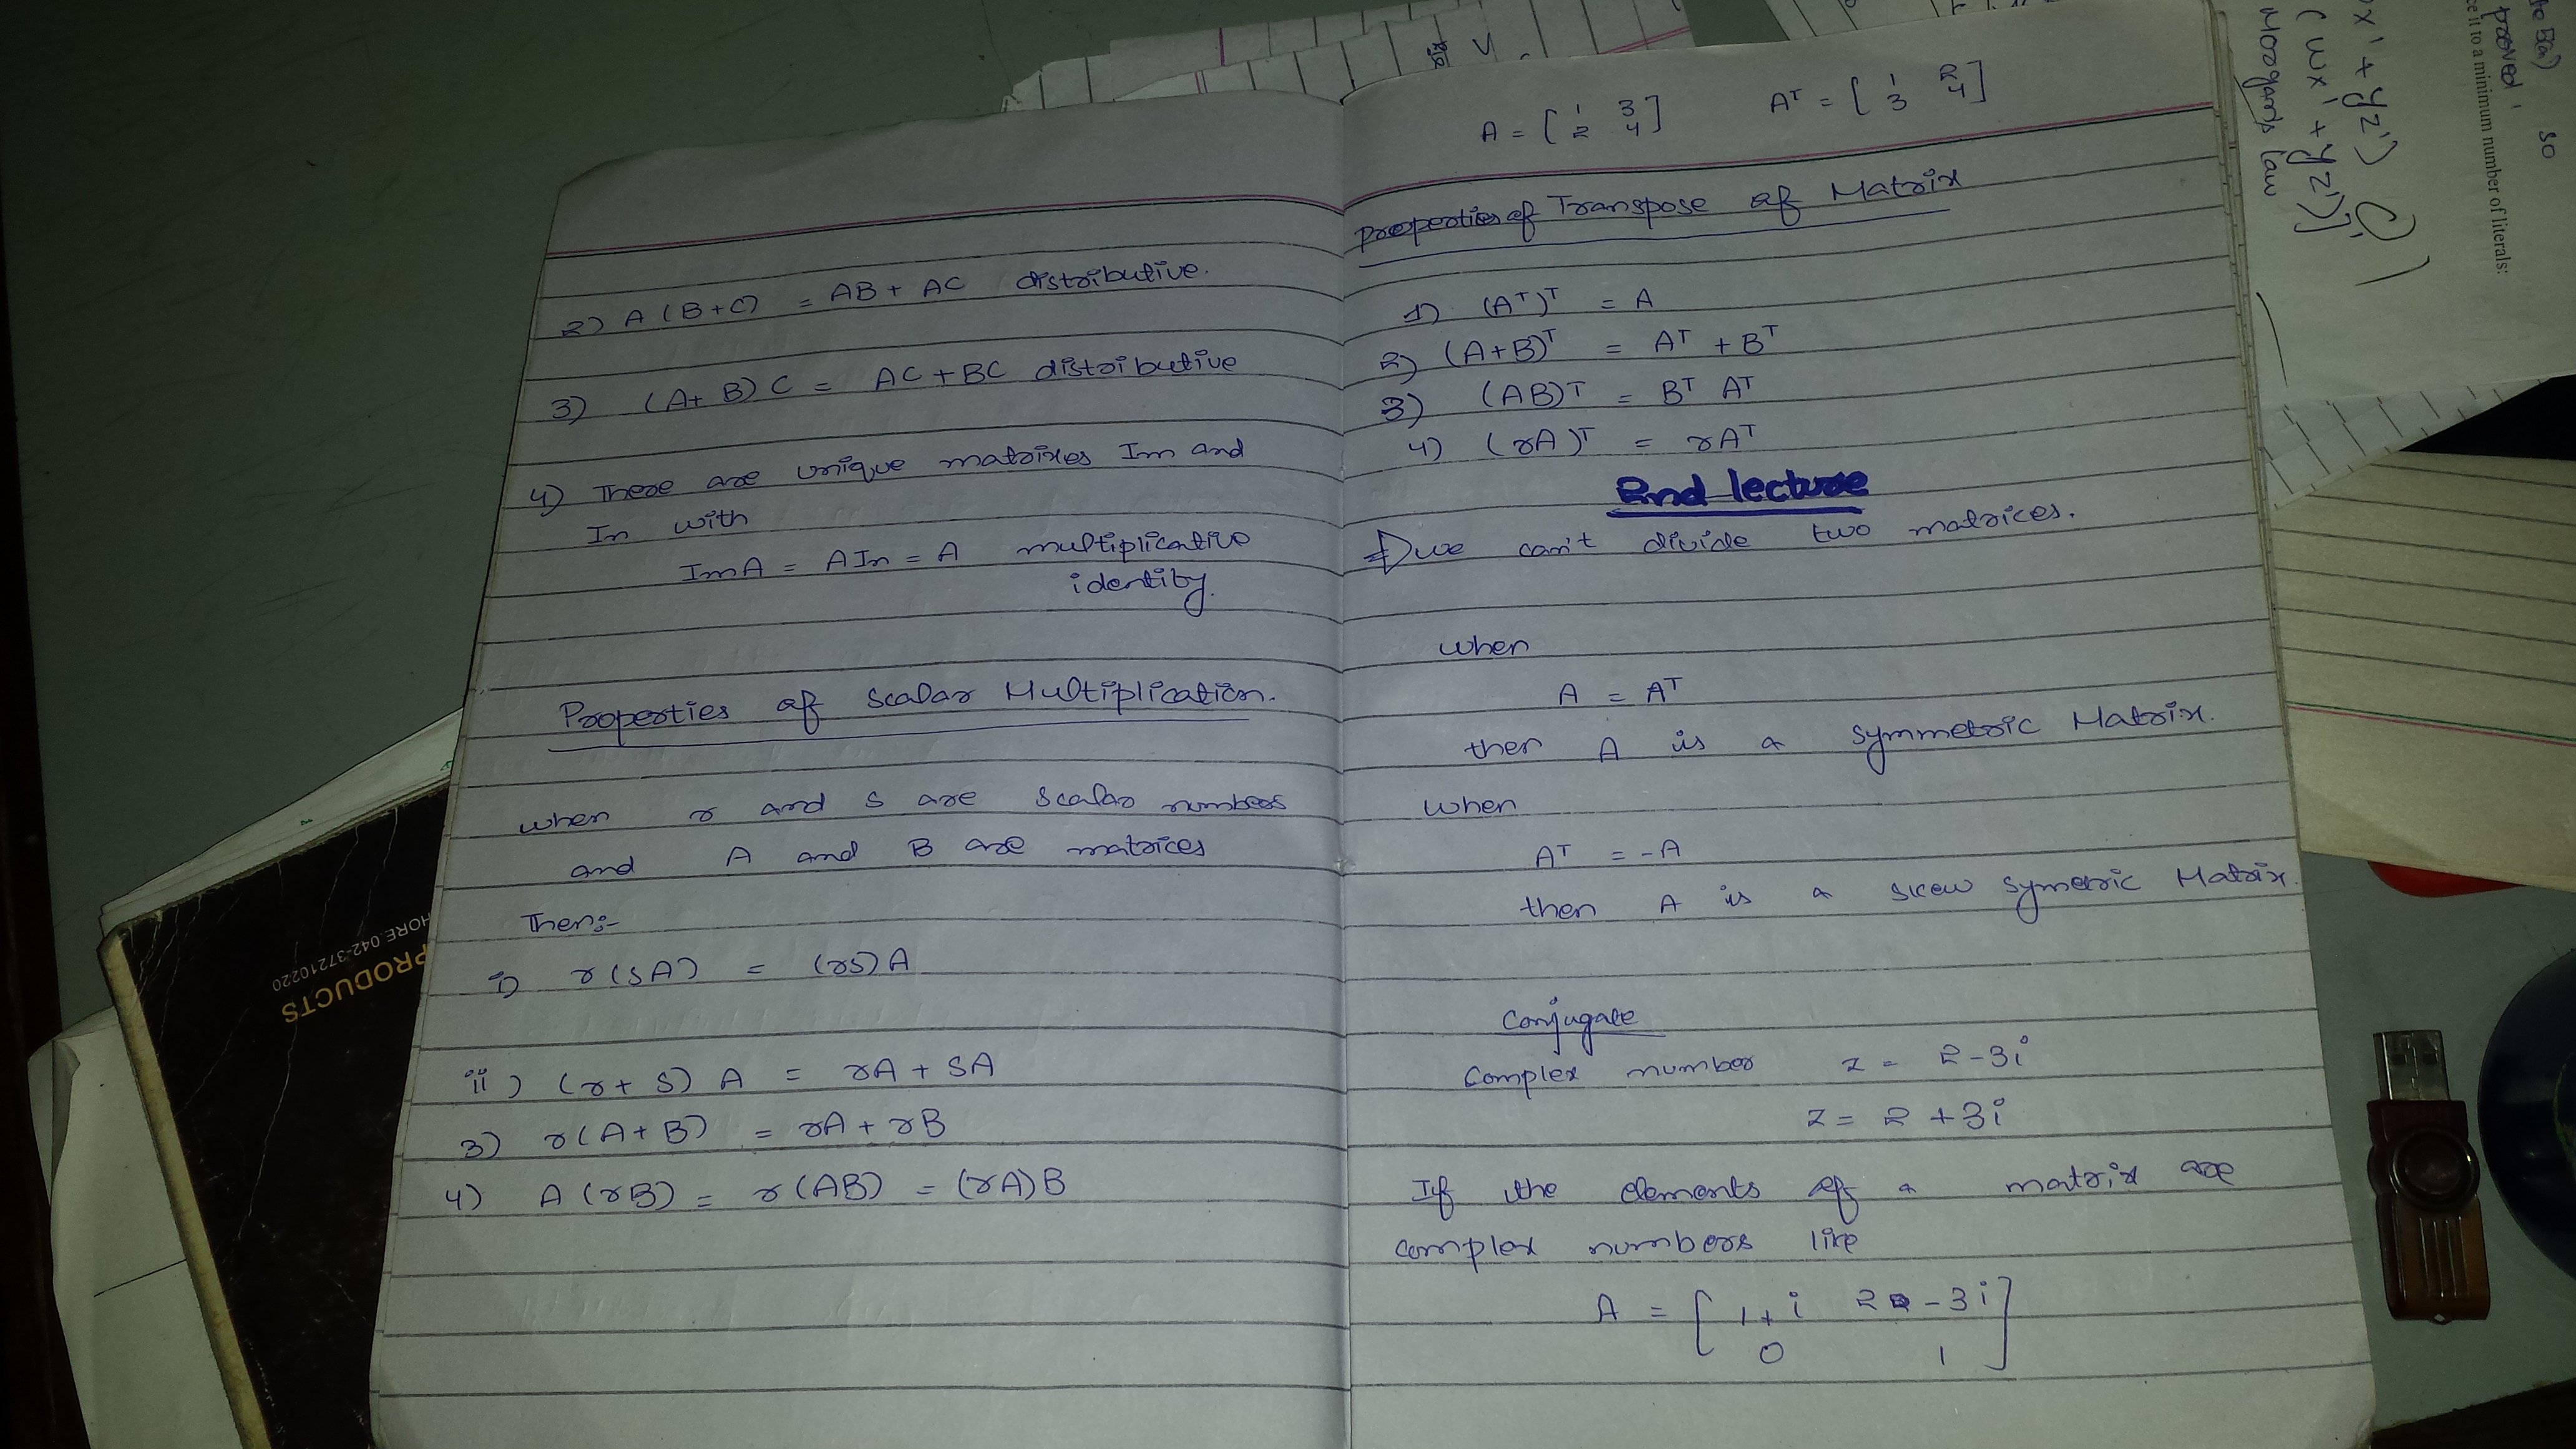 2) A (B+C) = AB + AC distributive.
3) (A+ B) C = AC + BC distributive
4) There are unique matrixes Im and
In with
ImA = AIn = A multiplicative
identity.
Properties of Scalar Multiplication.
when r and s are scalar numbers
and A and B are matrices
Then:-
i) r(sA) = (rs)A
ii) (r+s) A = rA + sA
3) r(A+B) = rA + rB
4) A(rB) = r(AB) = (rA)B
A = [ 1 3 ] A^T = [ 1 2 ]
2 4 3 4
Properties of Transpose of Matrix
1) (A^T)^T = A
2) (A+B)^T = A^T + B^T
3) (AB)^T = B^T A^T
4) (rA)^T = rA^T
End lecture
we can't divide two matrices.
when
A = A^T
then A is a symmetric Matrix.
when
A^T = -A
then A is a skew symetric Matrix.
Conjugate
Complex number z = 2-3i
z = 2+3i
If the elements of a matrix are
complex numbers like
A = [ 1+i 2-3i ]
0 1
PRODUCTS
HORE.042-37210220
ce it to a minimum number of literals:
proved' so
x'+yz')
(wx'+yz')]'
Morgan's law